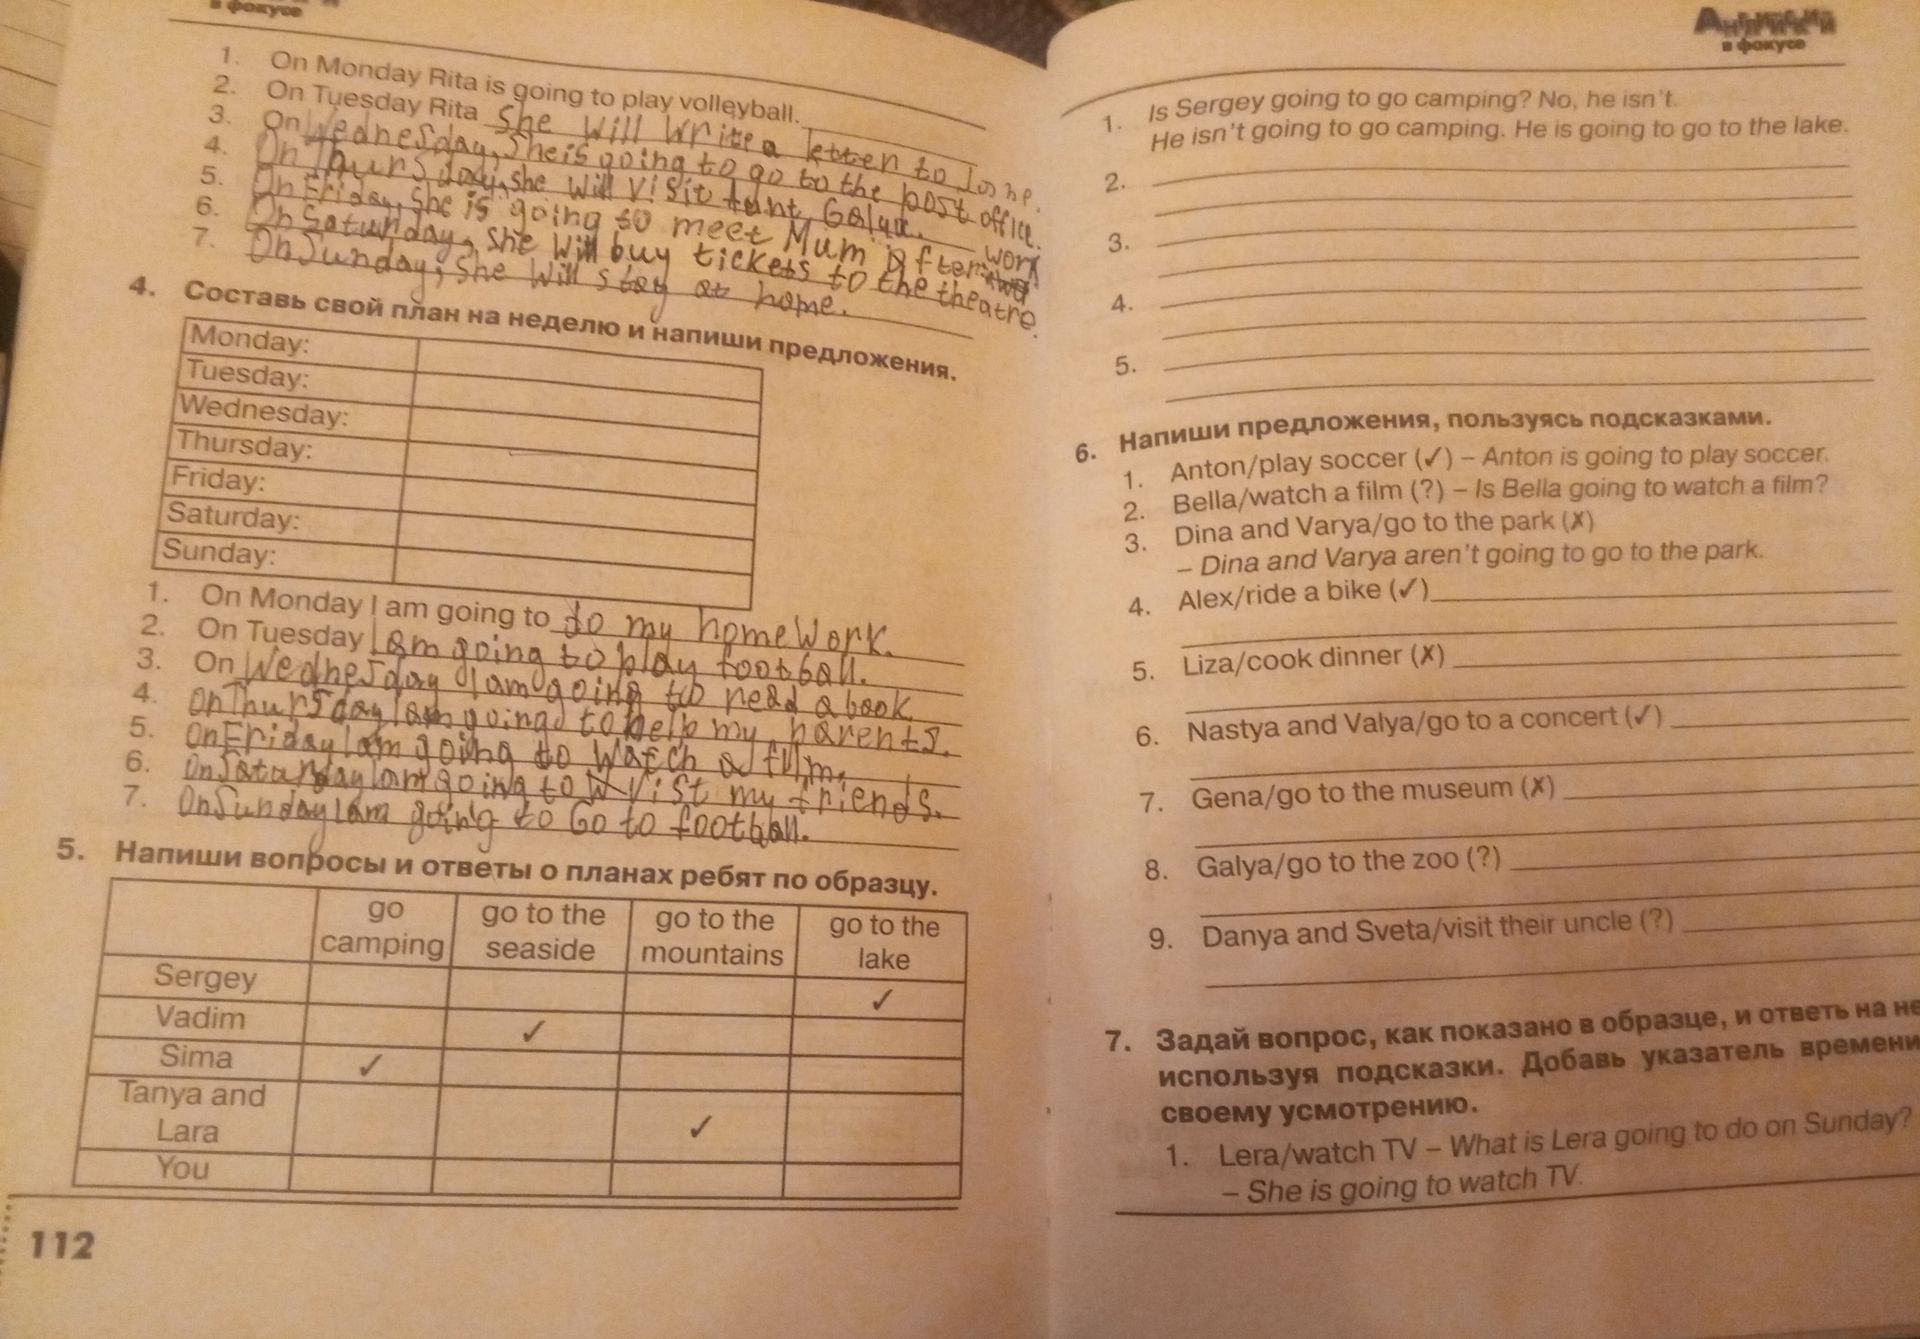 в фокусе
1. On Monday Rita is going to play volleyball.
2. On Tuesday Rita she will write a letter to
3. On Wednesday, she is going to go to the post office.
4. On Thursday, she will visit Aunt Galya.
5. On Friday, she is going to meet Mum after work
6. On Saturday, she will buy tickets to the theatre.
7. On Sunday, she will stay at home.
4. Составь свой план на неделю и напиши предложения.
Monday:
Tuesday:
Wednesday:
Thursday:
Friday:
Saturday:
Sunday:
1. On Monday I am going to do my homework.
2. On Tuesday I am going to play football.
3. On Wednesday I am going to read a book.
4. On Thursday I am going to help my parents.
5. On Friday I am going to watch a film.
6. On Saturday I am going to vist my friends.
7. On Sunday I am going to Go to football.
5. Напиши вопросы и ответы о планах ребят по образцу.
go camping go to the seaside go to the mountains go to the lake
Sergey ✓
Vadim ✓
Sima ✓
Tanya and Lara ✓
You
112
Английский
в фокусе
1. Is Sergey going to go camping? No, he isn't.
He isn't going to go camping. He is going to go to the lake.
2.
3.
4.
5.
6. Напиши предложения, пользуясь подсказками.
1. Anton/play soccer (✓) – Anton is going to play soccer.
2. Bella/watch a film (?) – Is Bella going to watch a film?
3. Dina and Varya/go to the park (✗)
– Dina and Varya aren't going to go to the park.
4. Alex/ride a bike (✓)
5. Liza/cook dinner (✗)
6. Nastya and Valya/go to a concert (✓)
7. Gena/go to the museum (✗)
8. Galya/go to the zoo (?)
9. Danya and Sveta/visit their uncle (?)
7. Задай вопрос, как показано в образце, и ответь на не
используя подсказки. Добавь указатель времени
своему усмотрению.
1. Lera/watch TV – What is Lera going to do on Sunday?
– She is going to watch TV.